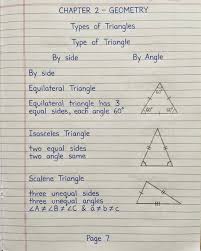 CHAPTER 2 - GEOMETRY
Types of Triangles
Type of Triangle
By side By Angle
By side
Equilateral Triangle
Equilateral triangle has 3
equal sides, each angle 60°
60° 60°
Isosceles Triangle
two equal sides
two angle same
Scalene Triangle
three unequal sides
three unequal angles
∠A≠∠B≠∠C & a≠b≠c
Page 7